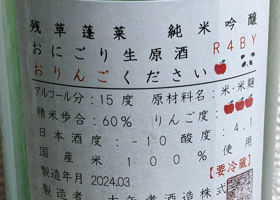 残草蓬莱 純米吟醸
おにごり生原酒 R4BY
おりんごください
アルコール分:15度 原材料名:米・米麹
精米歩合:60% りんご度:
日本酒度:-10 酸度:4.1
国産米100%使用
【要冷蔵】
製造年月 2024.03
製造者 大矢孝酒造株式